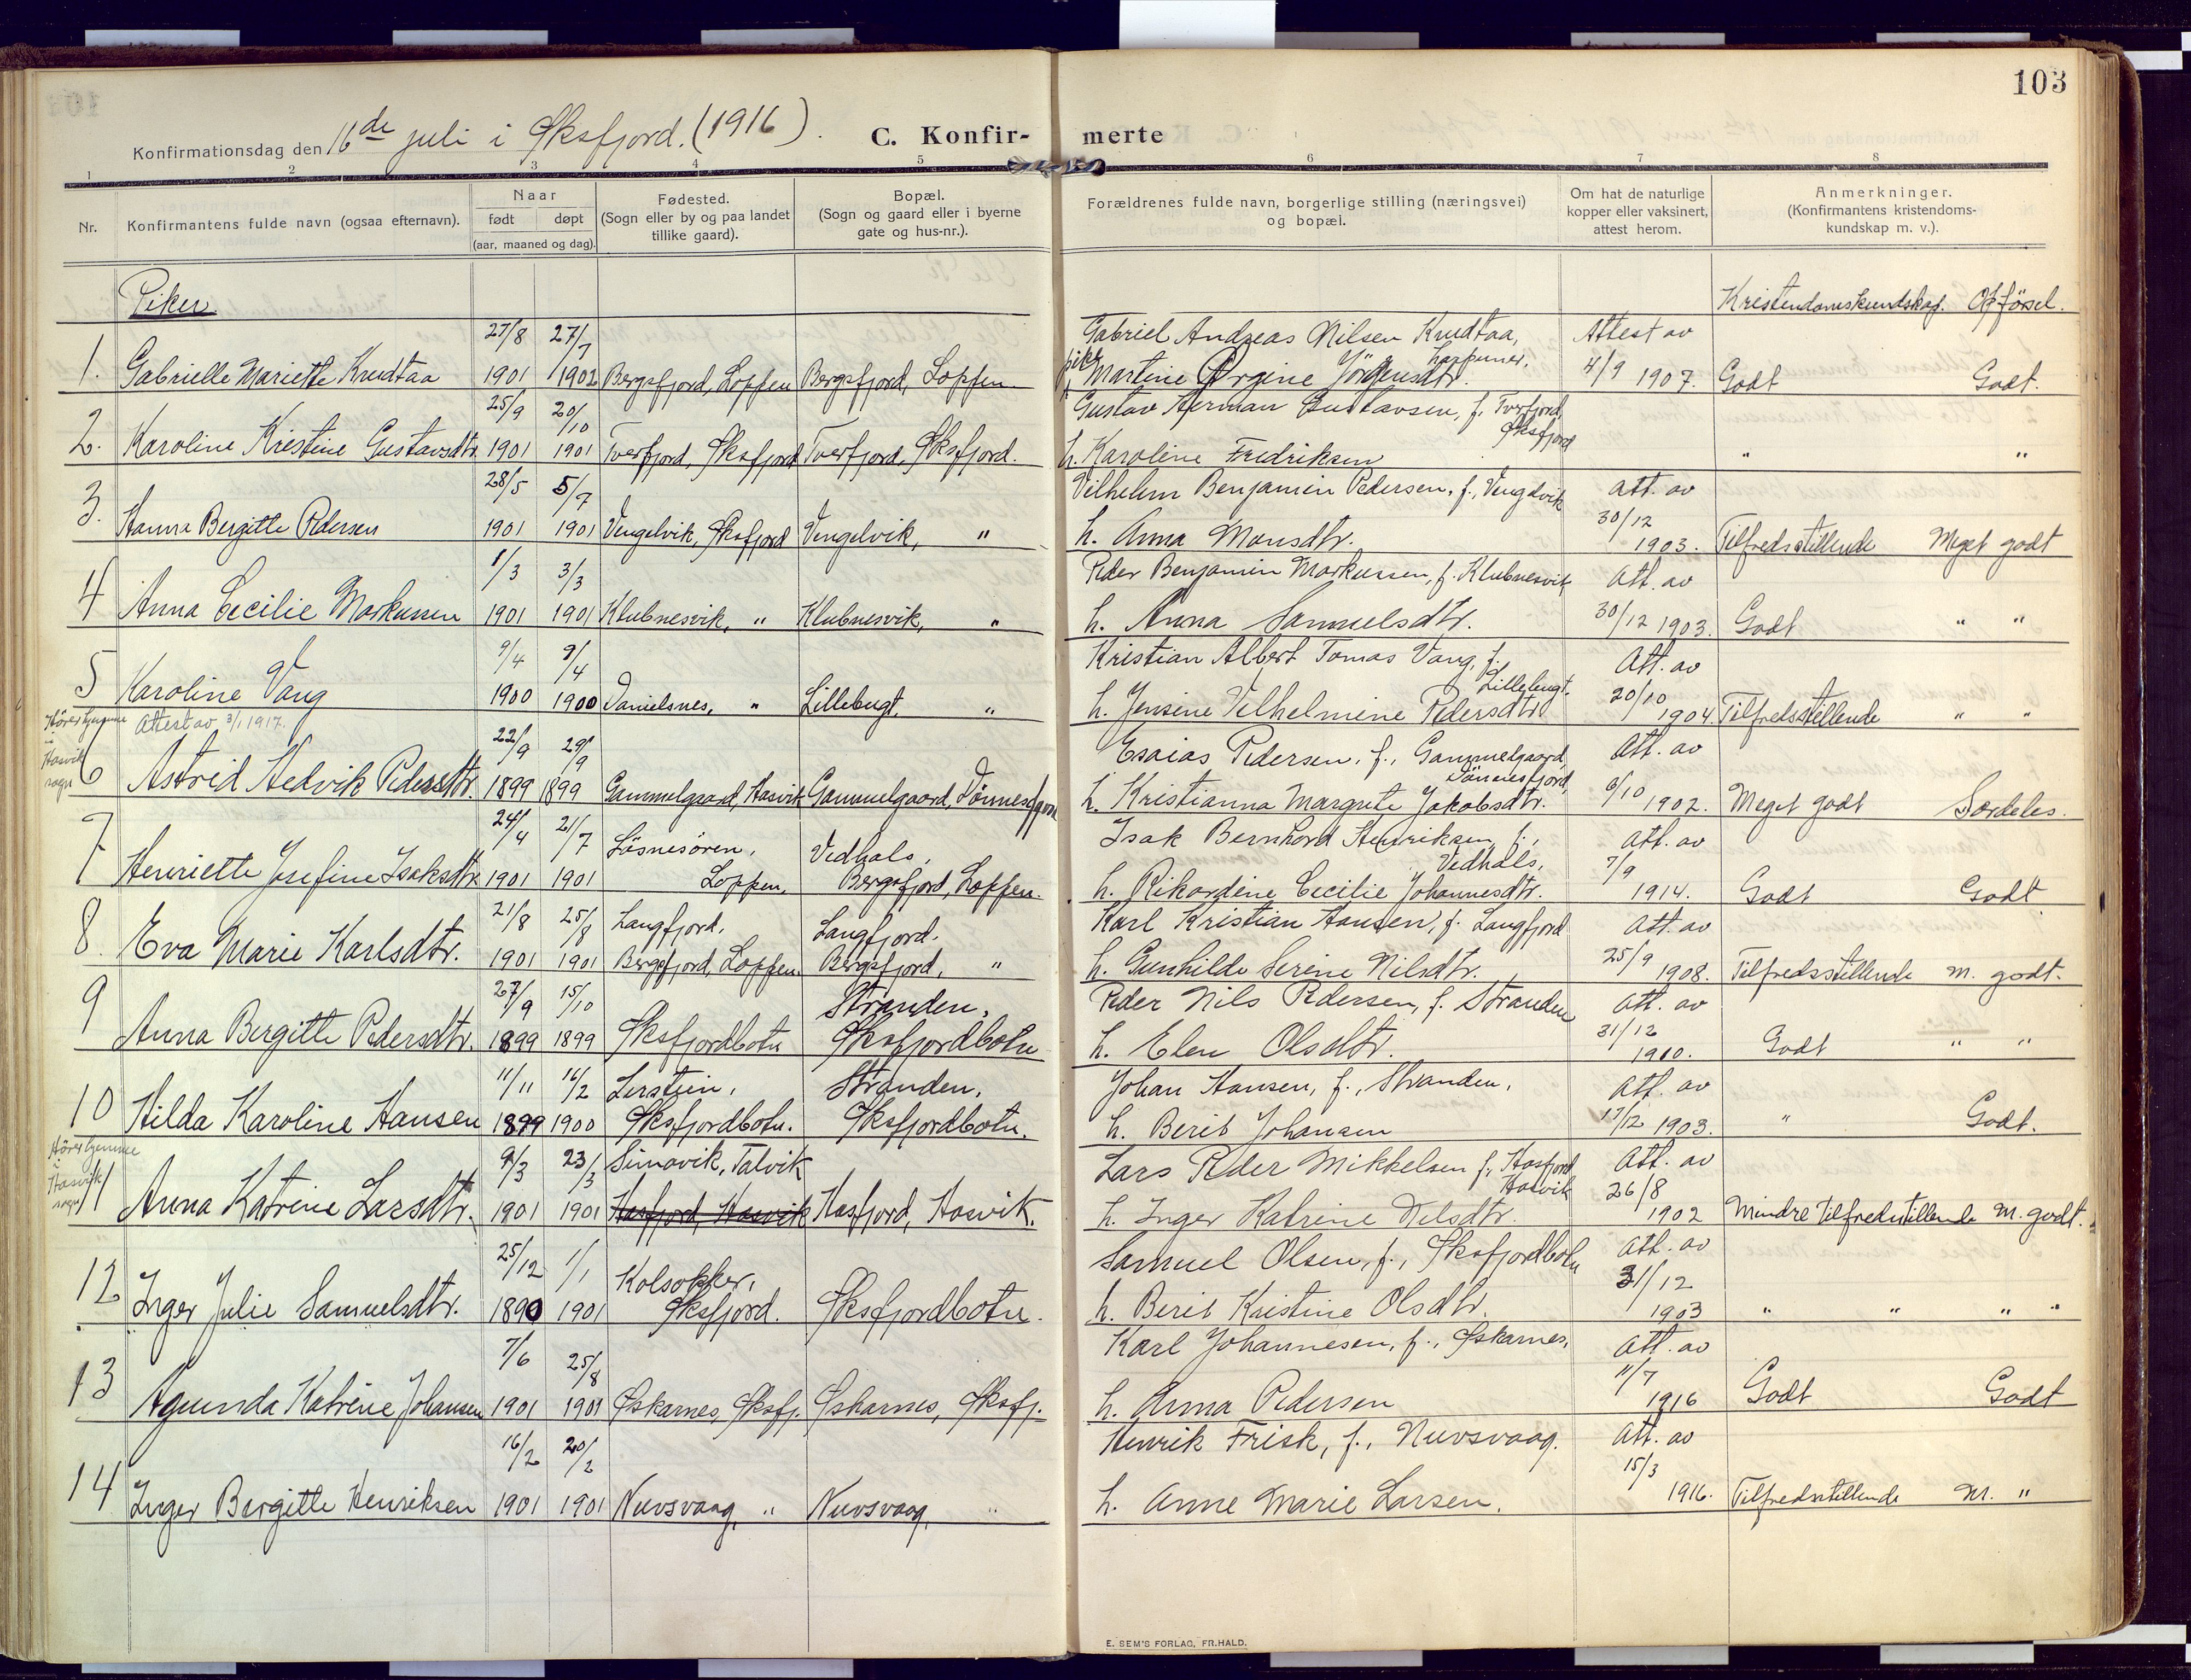 103
Konfirmationsdag den 16de juli i Øksfjord. (1916).
C. Konfirmerte
1 2 3 4 5 6 7 8
Nr.
Konfirmantens fulde navn (ogsaa efternavn).
Naar
født døpt
(aar, maaned og dag).
Fødested.
(Sogn eller by og paa landet
tillike gaard).
Bopæl.
(Sogn og gaard eller i byerne
gate og hus-nr.).
Forældrenes fulde navn, borgerlige stilling (næringsvei)
og bopæl.
Om hat de naturlige
kopper eller vaksinert,
attest herom.
Anmerkninger.
(Konfirmantens kristendoms-
kundskap m. v.).
Piker
Kristendomskundskap. Opførsel.
27/8 27/7 Gabriel Andreas Nilsen Knudtaa, Attest av
1. Gabrielle Mariette Knudtaa 1901 1902 Bergsfjord, Loppen Bergsfjord, Loppen. pike Martine Orgine Jörgensdtr. 4/9 1907. Godt Godt.
25/9 20/10 Gustav Herman Gustavsen, f. Tverfjord, Øksfjord
2. Karoline Kristine Gustavsdtr. 1901 1901 Tverfjord, Øksfjord Tverfjord, Øksfjord. h. Karoline Fredriksen " "
28/5 5/7 Vilhelm Benjamin Pedersen, f., Vengelvik Att. av
3. Hanna Bergitte Pedersen 1901 1901 Vengelvik, Øksfjord Vengelvik, " h. Anna Monsdtr. 30/12 1903. Tilfredsstillende Meget godt
1/3 3/3 Peder Benjamin Markussen, f. Klubnesvik Att. av
4 Anna Cecilie Markussen 1901 1901 Klubnesvik, " Klubnesvik, " h. Anna Samuelsdtr. 30/12 1903. Godt " "
9/4 9/4 Kristian Albert Tomas Vang, f. Lillebugt. Att. av
5 Karoline Vang 1900 1900 Danielsnes, " Lillebugt, " h. Jensine Vilhelmine Pedersdtr. 20/10 1904. Tilfredsstillende " "
Hører hjemme i Hasvik sogn Attest av 3/1 1917.
22/9 29/9 Esaias Pedersen, f., Gammelgaard, Dönnesfjord, Att. av
6 Astrid Hedvik Pedersdtr. 1899 1899 Gammelgaard, Hasvik Gammelgaard, Dönnesfjord h. Kristianna Margrete Jakobsdtr. 6/10 1902. Meget godt Særdeles.
24/4 21/7 Lösnesören, Vedhals, Isak Bernhard Henriksen, f., Vedhals, Att. av
7 Henriette Josefine Isaksdtr. 1901 1901 Loppen. Bergsfjord, Loppen. h. Rikardine Cecilie Johannesdtr. 7/9 1914. Godt Godt
21/8 25/8 Langfjord, Langfjord. Karl Kristian Hansen, f. Langfjord Att. av
8. Eva Marie Karlsdtr. 1901 1901 Bergsfjord, Loppen. Bergsfjord, " h. Gunhilde Serine Nilsdtr. 25/9 1908. Tilfredsstillende M. godt.
27/9 15/10 Stranden, Peder Nils Pedersen, f. Stranden Att. av
9 Anna Bergitte Pedersdtr. 1899 1899 Øksfjordbotn Øksfjordbotn h. Elen Olsdtr. 31/12 1910. Godt " "
11/11 16/2 Lerstein, Stranden, Johan Hansen, f., Stranden, Att. av
10 Hilda Karoline Hansen 1899 1900 Øksfjordbotn. Øksfjordbotn. h. Berit Johansen 17/12 1903. " Godt.
Hører hjemme i Hasvik sogn 9/3 23/3 Simavik, Talvik Lars Peder Mikkelsen f., Hasfjord, Hasvik Att. av
11 Anna Katrine Larsdtr. 1901 1901 Hasfjord, Hasvik Hasfjord, Hasvik. h. Inger Katrine Nilsdtr. 26/8 1902 Mindre tilfredsstillende M. godt.
25/12 1/1 Kolsokker, Samuel Olsen, f., Øksfjordbotn Att. av
12 Inger Julie Samuelsdtr. 1890 1901 Øksfjord. Øksfjordbotn. h. Berit Kristine Olsdtr. 31/12 1903 " " " "
7/6 25/8 Karl Johannesen, f., Øskarnes, Att. av
13 Agunda Katrine Johansen 1901 1901 Øskarnes, Øksfj. Øskarnes, Øksfj. h. Anna Pedersen 11/7 1916 Godt Godt
16/2 20/2 Henrik Frisk, f., Nuvsvaag. Att. av
14 Inger Bergitte Henriksen 1901 1901 Nuvsvaag, " Nuvsvaag, " h. Anne Marie Larsen. 15/3 1916. Tilfredsstillende M. "
E. SEM'S FORLAG, FR.HALD.